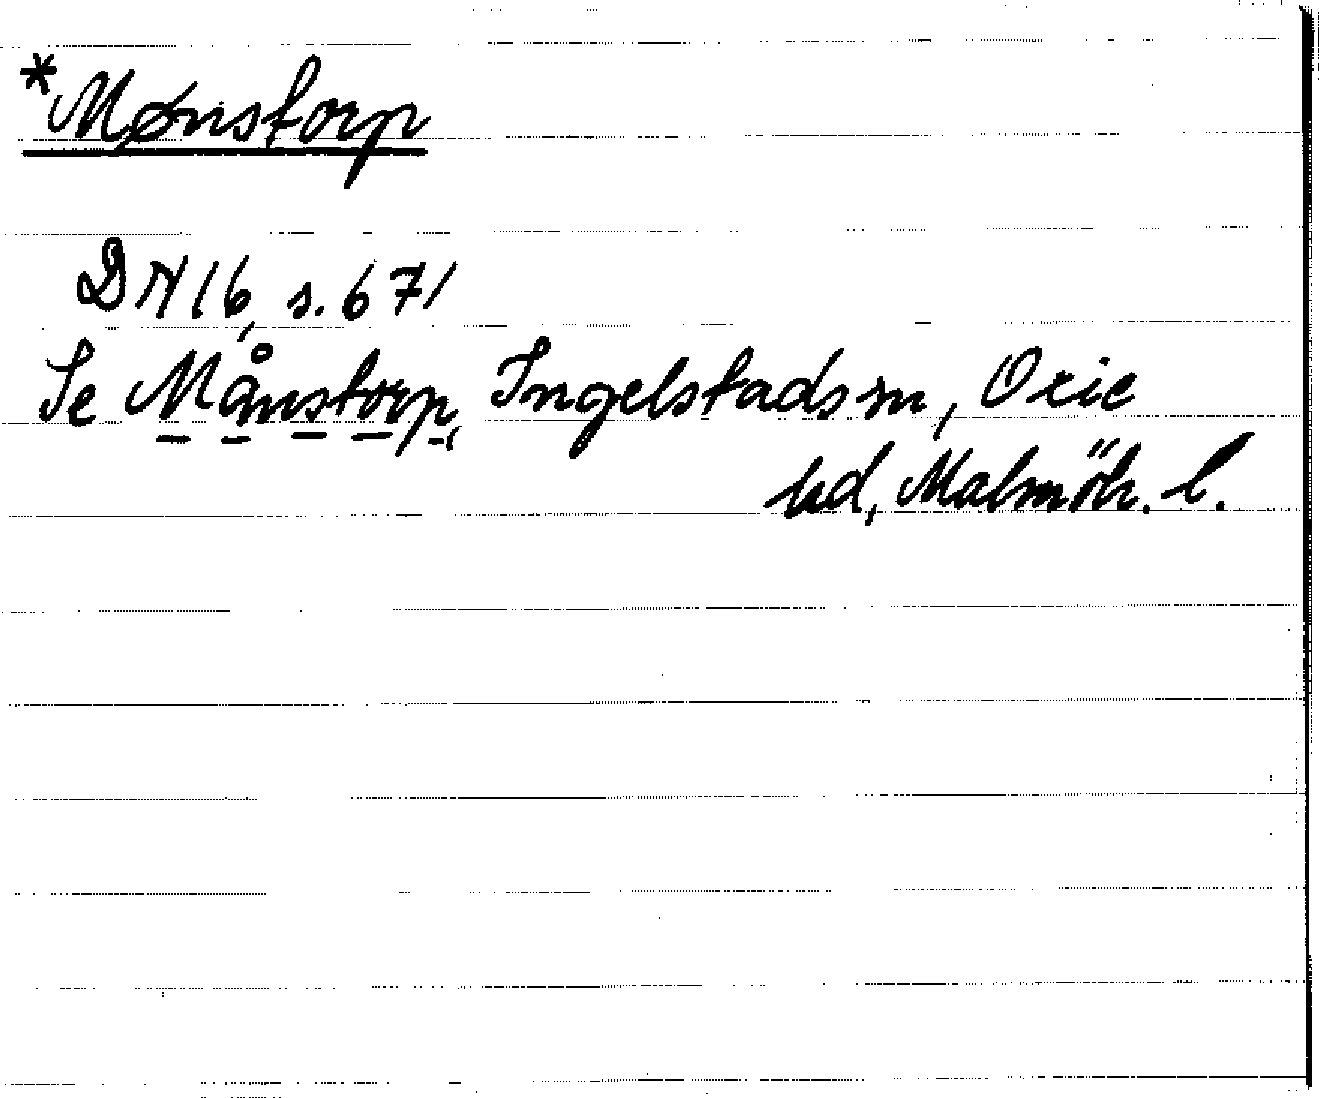 *Mønstorp
DN 16, s. 671
Se Månstorp, Ingelstads sn, Oxie
hd, Malmöh. l.